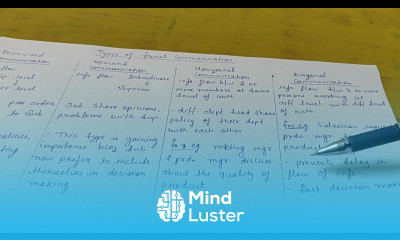 Types of formal communication
Downward
communication
flow
level
er level
pass orders
to Sub
policies,
hing
Upward
communication
info flow Subordinates
↓
Superior
Sub share opinions,
problems with sup.
- This type is gaining
importance bcoz sub
now prefer to include
themselves in decision
making
Horizontal
Communication
info flow b/w 2 or
more members at same
level of auth
diff dept head share
policy of their dept
with each other
for eg mktng mgr
& prdn mgr discuss
about the quality of
product
Diagonal
Communication
info flow b/w 2 or more
persons working at
diff level with diff level
of auth
for eg Salesman
prdn mgr
product
- prevents delay in
flow of info
- fast decision making
Mind
Luster